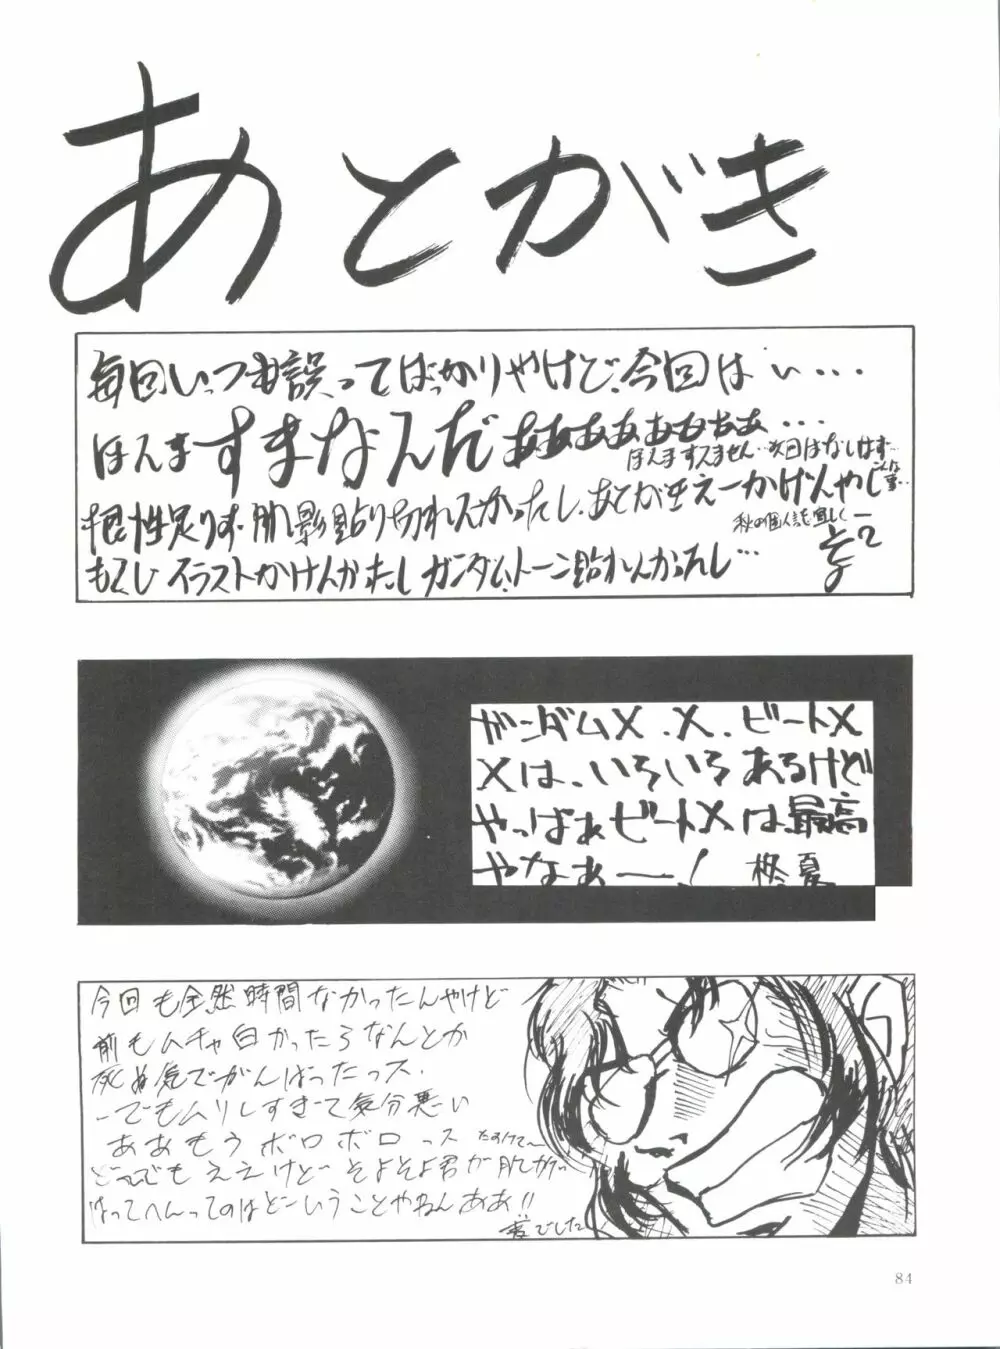 あとがき
毎回いっつも誤ってばっかりやけど、今回は い・・・
ほんますまなんだぁああぁぁぁああぁ・・・
ほんますみません…次回はなしはず…
こんな事…
根性足りず、肌影貼り切れんかったし、あとがきえーかげんやし
秋の個人誌も宜しくー
もくじイラストかけんかったし ガンダム、トーン貼れんかったし…
ガンダムX.X.ビートX
Xは、いろいろあるけど
やっぱぁビートXは最高
やなぁー! 柊夏
今回も全然時間なかったんやけど
前もムチャ白かったろなんとか
死ぬ気でがんばったっス.
ーでもムリしすぎて気分悪い
ああもうボロボロっス たすけて〜
どーでもええけど そよそよ君が肌カゲ
はってへんってのはどーいうことやねんああ!!
でした
84